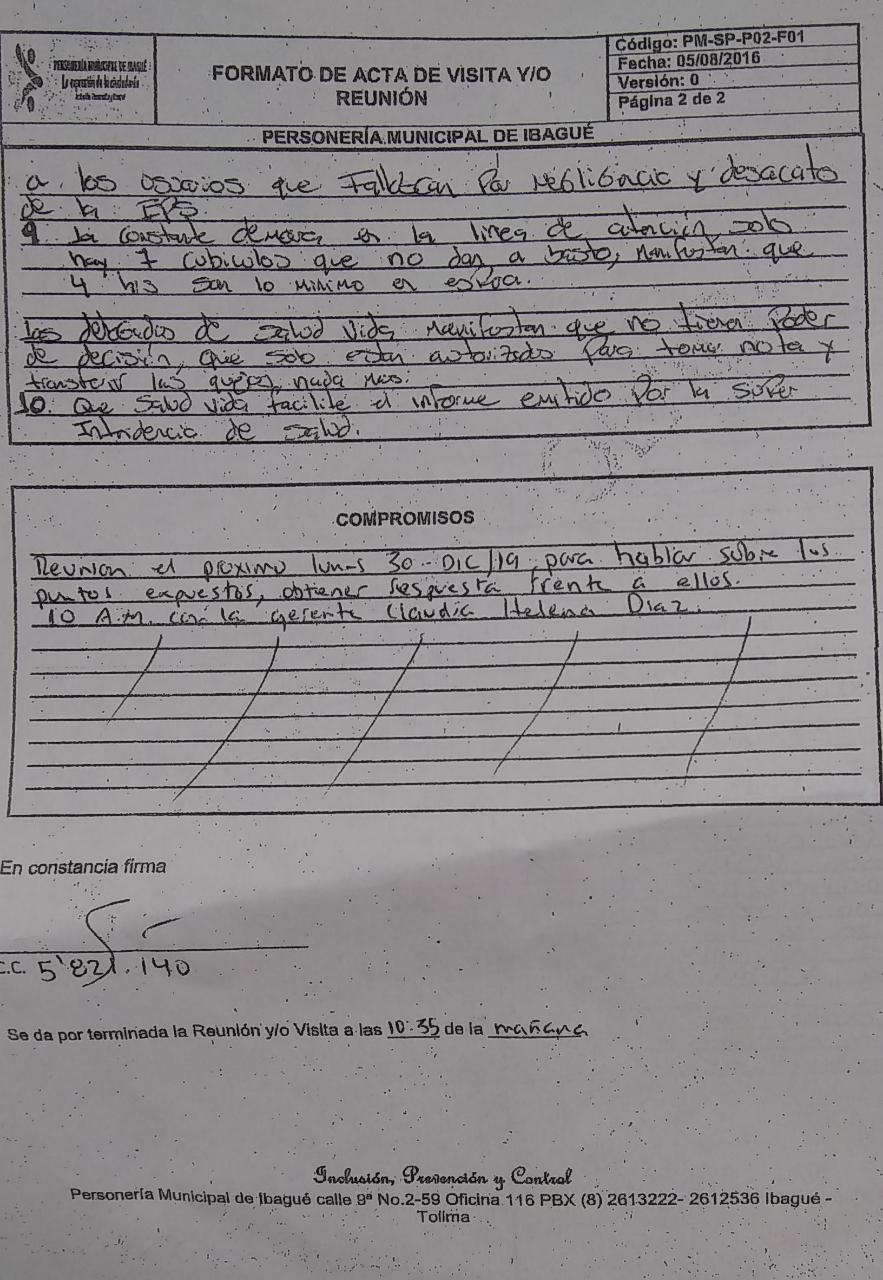 PERSONERÍA MUNICIPAL DE IBAGUÉ
FORMATO DE ACTA DE VISITA Y/O
REUNIÓN
Código: PM-SP-P02-F01
Fecha: 05/08/2016
Versión: 0
Página 2 de 2
PERSONERÍA MUNICIPAL DE IBAGUÉ
a los usuarios que Falleran Por negligencia y desacato
de la EPS
9 La constante demora en la linea de atención, solo
hay 7 cubiculos que no dan a basto, manifiestan que
4 hrs son lo minimo en espera.
los delegados de salud vida manifiestan que no tienen Poder
de decisión, que solo estan autorizados Para tomar nota y
transferir las quejas, nada mas.
10. Que Salud vida facilite el informe emitido Por la Super
Intendencia de salud.
COMPROMISOS
Reunion el proximo lunes 30-DIC/19, para hablar sobre los
puntos expuestos, obtener respuesta frente a ellos.
10 A.M. con la gerente Claudia Helena Diaz.
En constancia firma
C.C. 5'821.140
Se da por terminada la Reunión y/o Visita a las 10:35 de la mañana
Inclusión, Prevención y Control
Personería Municipal de Ibagué calle 9ª No.2-59 Oficina 116 PBX (8) 2613222- 2612536 Ibagué -
Tolima